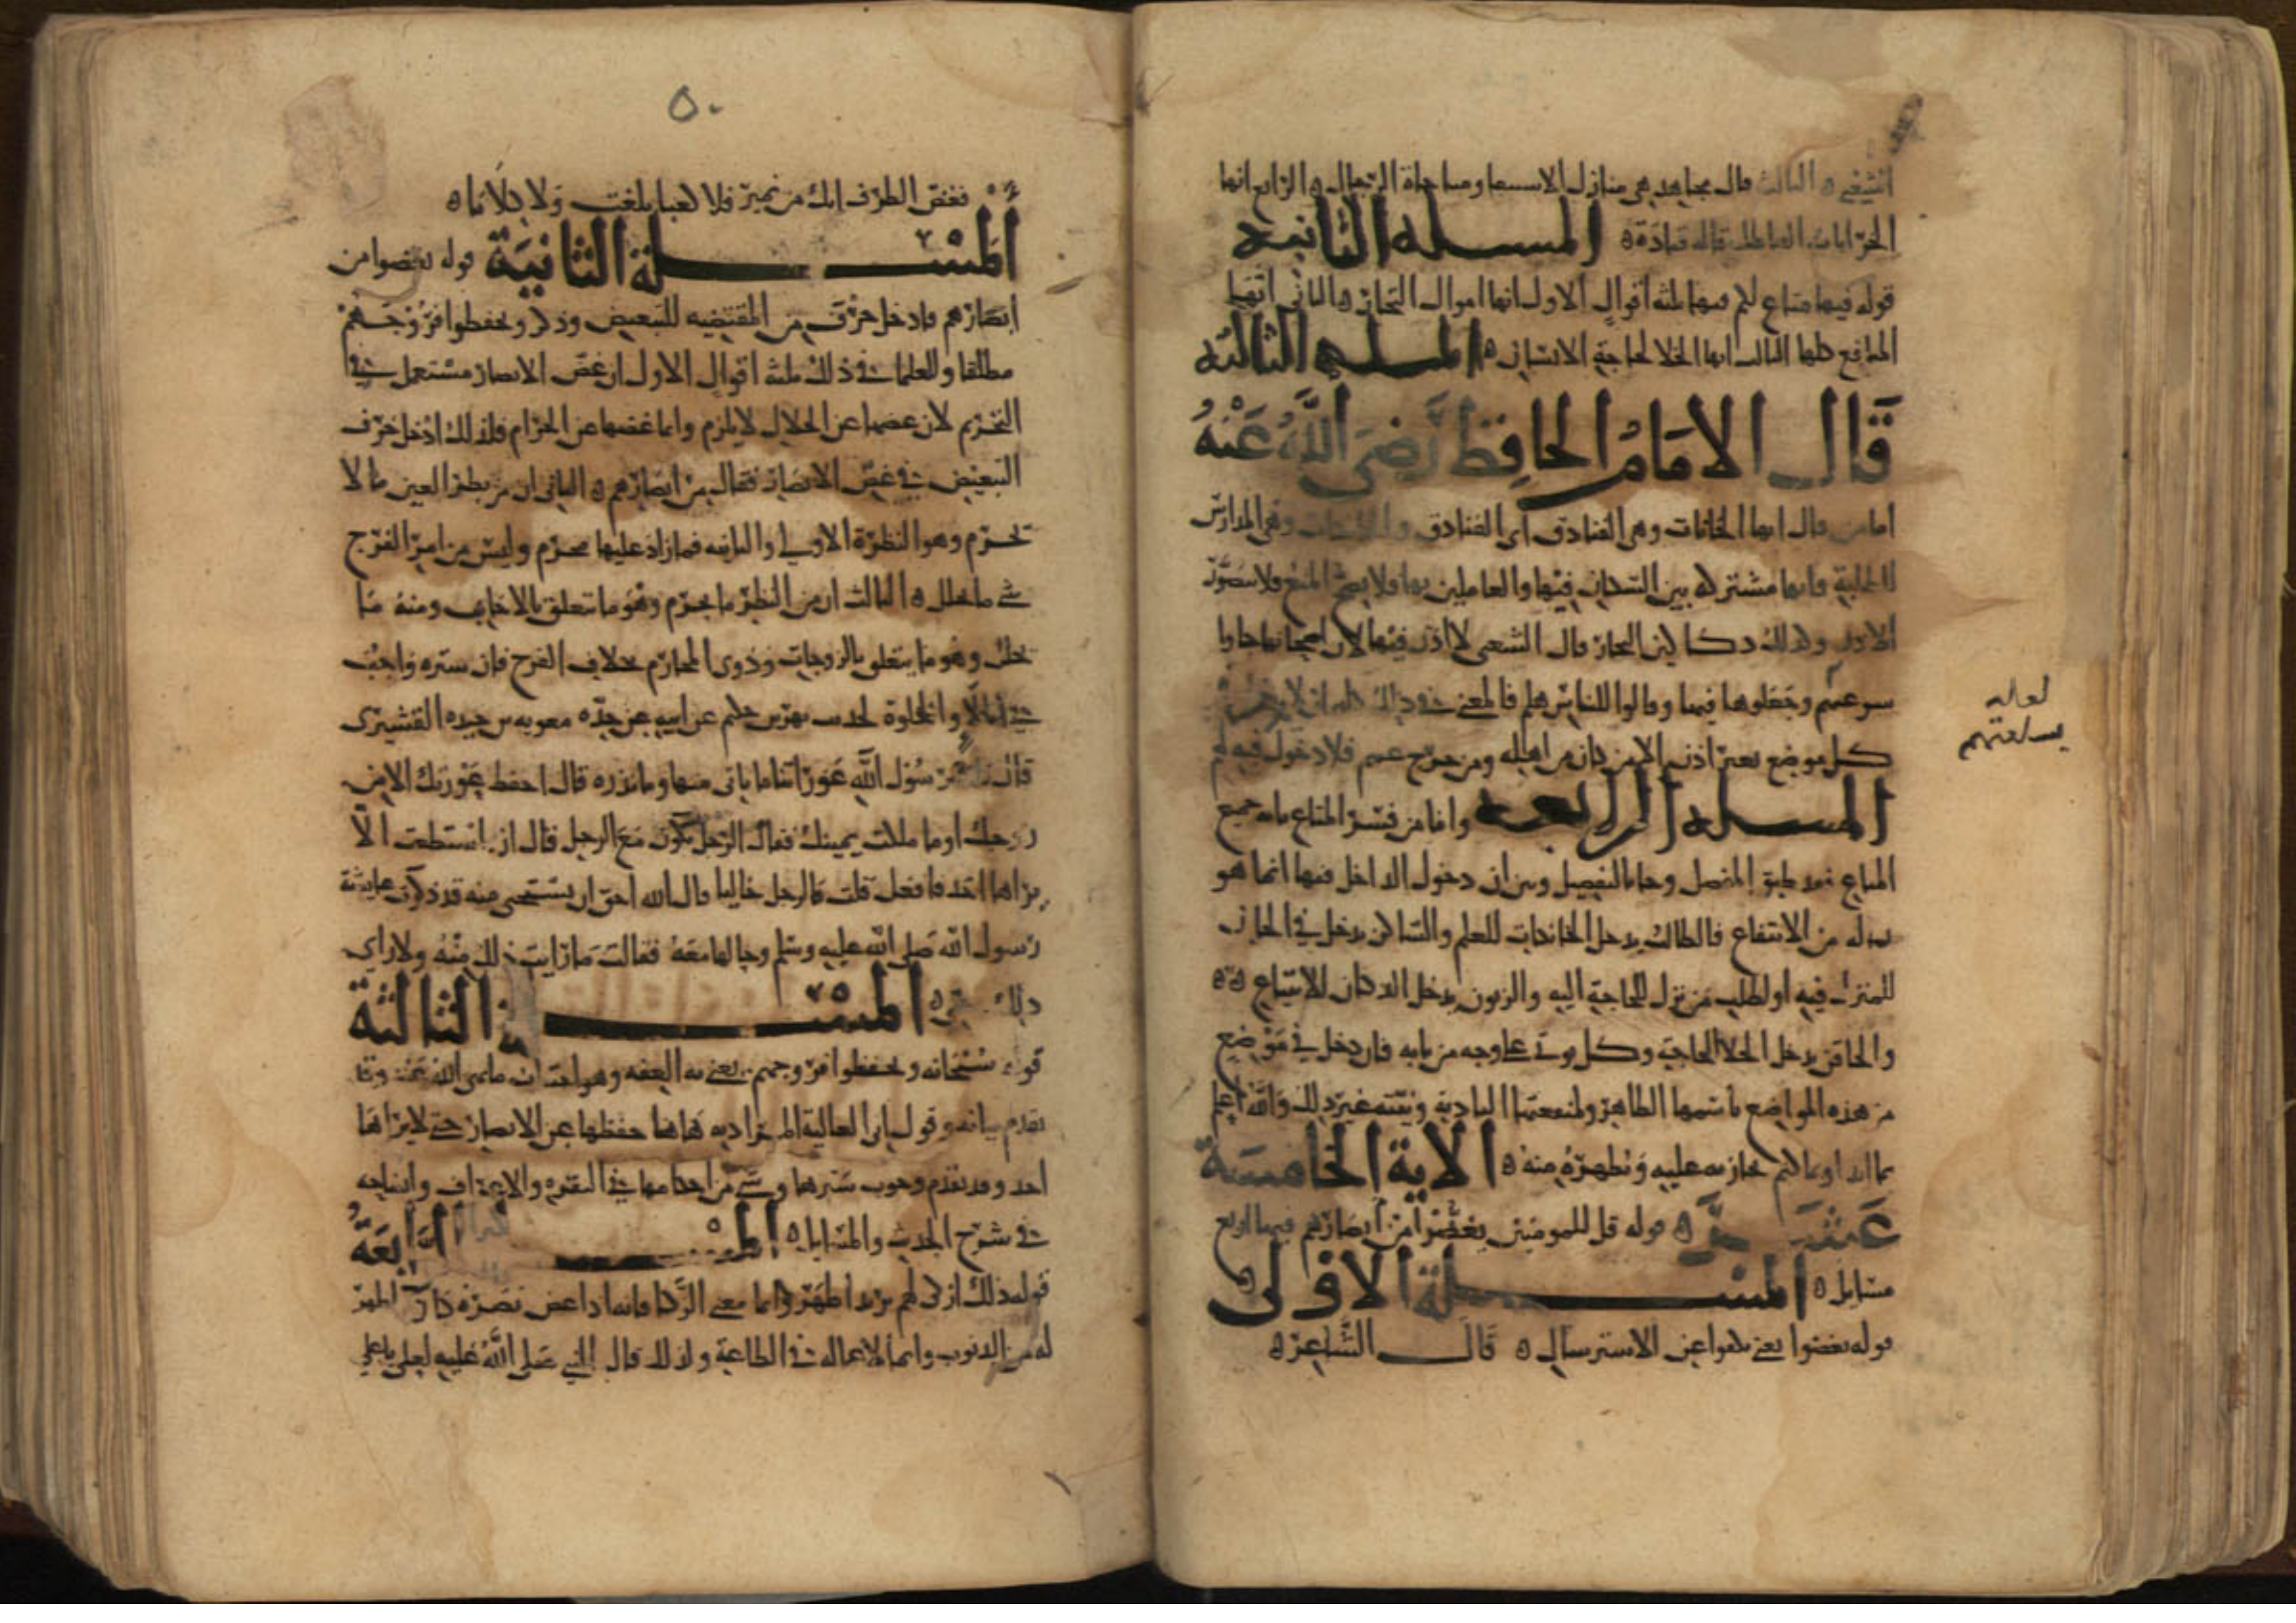 الثالث قال مجاهد هي منازل الاسفار ومناخاة الرجال ه الرابع انها
الخرابات العاطلة قاله قتادة ه المسله الثانيه
قوله فيها متاع لكم فيها ثلثه أقوال الاول انها اموال التجار ه الثاني انها
المنافع كلها الثالث انها الخلا لحاجة الانسان ه المسله الثالثه
قال الامام الحافظ رضي الله عنه
اما من قال انها الخانات وهي الفنادق اي الفنادق والخانات وهي المدارس
للطلبة فانها مشتركه بين السكان فيها والعاملين بها ولا يصح المنع فلا يتصور
الاذن ولذلك دكاكين التجار قال الشعبي لا اذن فيها لان اصحابها جاوا
ببيوعهم وجعلوها فيها وقالوا للناس هلم فالمعنى في ذلك كله
كل موضع بغير اذن الا من كان من اهله ومن خرج عنهم فلا دخول فيه لهم
لعله
ببياعتهم
المسله الرابعه واما من فسر المتاع بانه جميع
وجا بالتفصيل وبين ان دخول الداخل فيها انما هو
لما له من الانتفاع فالطالب يدخل الخانكات للعلم والساكن يدخل في الخان
للمنزل فيه او لطلب من نزل للحاجة اليه والزبون يدخل الدكان للابتياع ه ه
والحاقن يدخل الخلا للحاجة وكل يوتى على وجه من بابه فان دخل في موضع
من هذه المواضع باسمها الظاهر ولمنفعتها البادية ونيته غير ذلك والله اعلم
بما ابدا او بما كتم يجازيه عليه ويظهره منه ه الاية الخامسة
عشر ه قوله قل للمومنين يغضوا من أبصارهم فيها اربع
مسايل ه المسلة الاولى ه
قوله يغضوا يعني يكفوا عن الاسترسال ه قال الشاعر ه
٥٠
فغض الطرف انك من نمير فلا كعبا بلغت ولا كلابا ه
المسلة الثانية قوله يغضوا من
ابصارهم فادخل حرف من المقتضيه للتبعيض وذكر ويحفظوا فروجهم
مطلقا وللعلما في ذلك ثلثة اقوال الاول ان غض الابصار مستعمل في
التحريم لان غضها عن الحلال لا يلزم وانما غضها عن الحرام فلذلك ادخل حرف
التبعيض في غض الابصار فقال من ابصارهم ه الثاني ان من نظر العين ما لا
يحرم وهو النظرة الاولى والثانيه فما زاد عليها محرم وليس من امر الفرج
شي ما يحلل ه الثالث ان من النظر ما يحرم وهو ما يتعلق بالاجانب ومنه ما
يحلل وهو ما يتعلق بالزوجات وذوي المحارم بخلاف الفرج فان ستره واجب
في الملا والخلوة لحديث بهز بن حكيم عن ابيه عن جده معويه بن حيده القشيري
قال قلت يا رسول الله عوراتنا ما ناتي منها وما نذره قال احفظ عورتك الا من
زوجك او ما ملكت يمينك فقال الرجل يكون مع الرجل قال ان استطعت الا
يراها احد فافعل قلت فالرجل خاليا قال الله احق ان يستحيى منه قد ذكرت عايشة
رسول الله صلى الله عليه وسلم وحالها معه فقالت ما رايت ذلك منه ولا راى
ذلك مني ه المسلة الثالثة
قوله سبحانه ويحفظوا فروجهم يعني به العفه وهو اجتناب ما نهى الله عنه وقد
تقدم بيانه وقول ابي العالية المراد به هاهنا حفظها عن الابصار حتى لا يراها
احد وقد تقدم وجوب سترها وشي من احكامها في البقره والاعراف وايضاحه
في شرح الحديث والمسايل ه المسلة الرابعة
قوله ذلك ازكى لهم يريد اطهر وانما معنى الزكا فانه اذا غض بصره كان اطهر
له من الذنوب وانما لاعماله في الطاعة ولذلك قال النبي صلى الله عليه لعلي يا علي